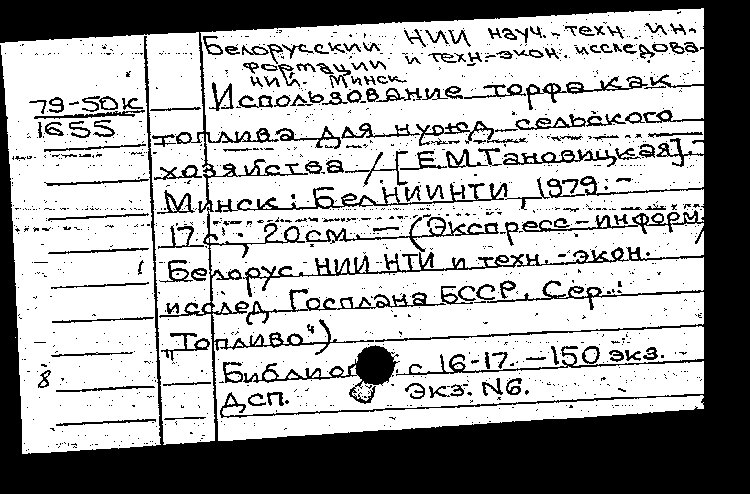 Белорусский НИИ науч.-техн. ин-
формации и техн.-экон. исследова-
ний. Минск.
79-50к
1655
Использование торфа как
топлива для нужд сельского
хозяйства / [Е.М.Тановицкая].-
Минск: БелНИИНТИ, 1979.-
17 с.; 20см. — (Экспресс-информ./
Белорус. НИИ НТИ и техн.-экон.
1
исслед. Госплана БССР. Сер.:
„Топливо").
Библиог с. 16-17. — 150 экз.
8
Дсп. Экз. N6.